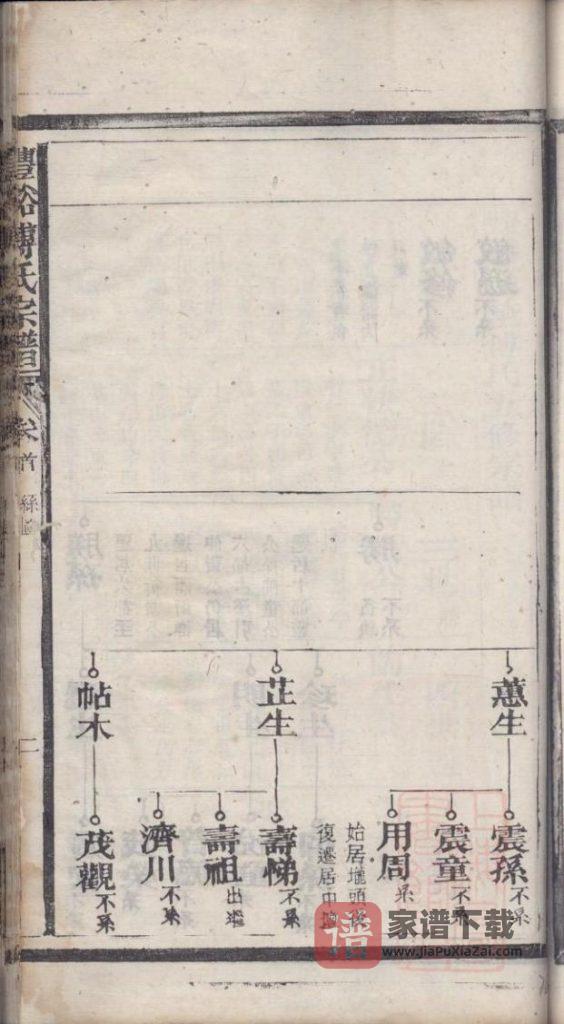 蕙生
震孫 不系
震童 不系
用周 系
始居塘頭
復遷居中
芷生
壽悌 不系
壽祖 出繼
濟川 不系
帖木
茂觀 不系
豐谿傅氏宗譜 卷首 系圖 二
譜 家谱下载
www.JiaPuXiaZai.com